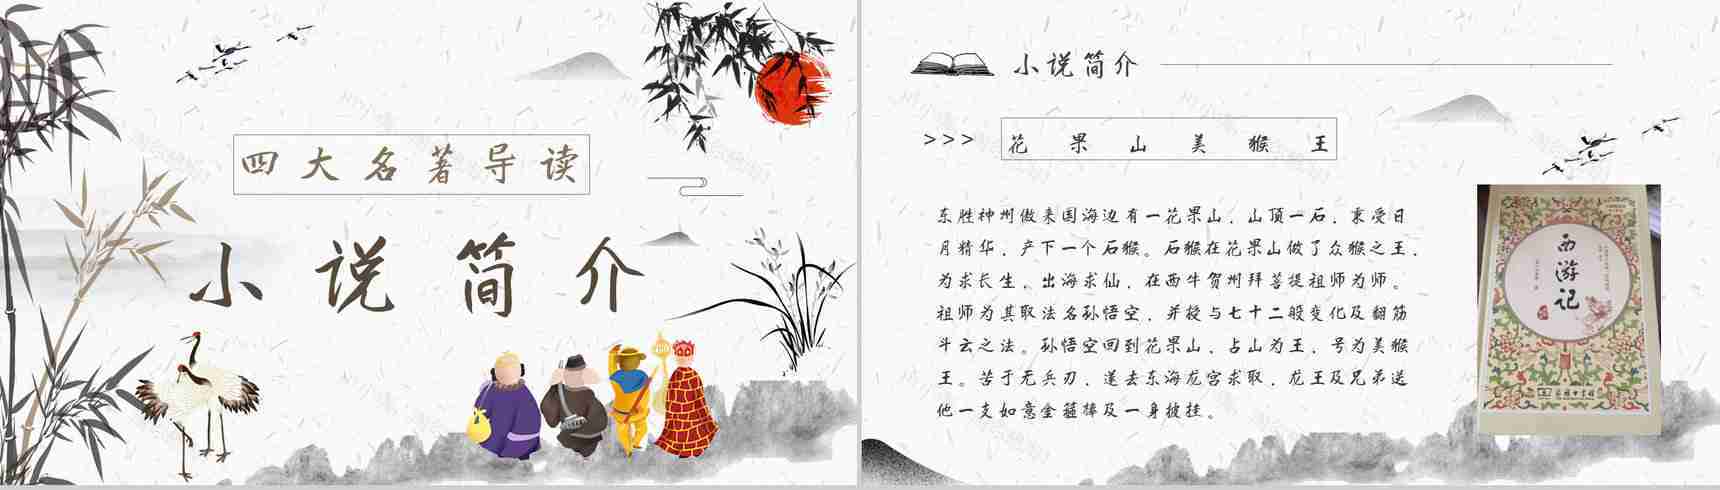 四大名著导读
小说简介
小说简介
>>> 花果山美猴王
东胜神州傲来国海边有一花果山，山顶一石，秉受日
月精华，产下一个石猴。石猴在花果山做了众猴之王，
为求长生，出海求仙，在西牛贺州拜菩提祖师为师。
祖师为其取法名孙悟空，并授与七十二般变化及翻筋
斗云之法。孙悟空回到花果山，占山为王，号为美猴
王。苦于无兵刃，遂去东海龙宫求取，龙王及兄弟送
他一支如意金箍棒及一身披挂。
西游记
商务印书馆